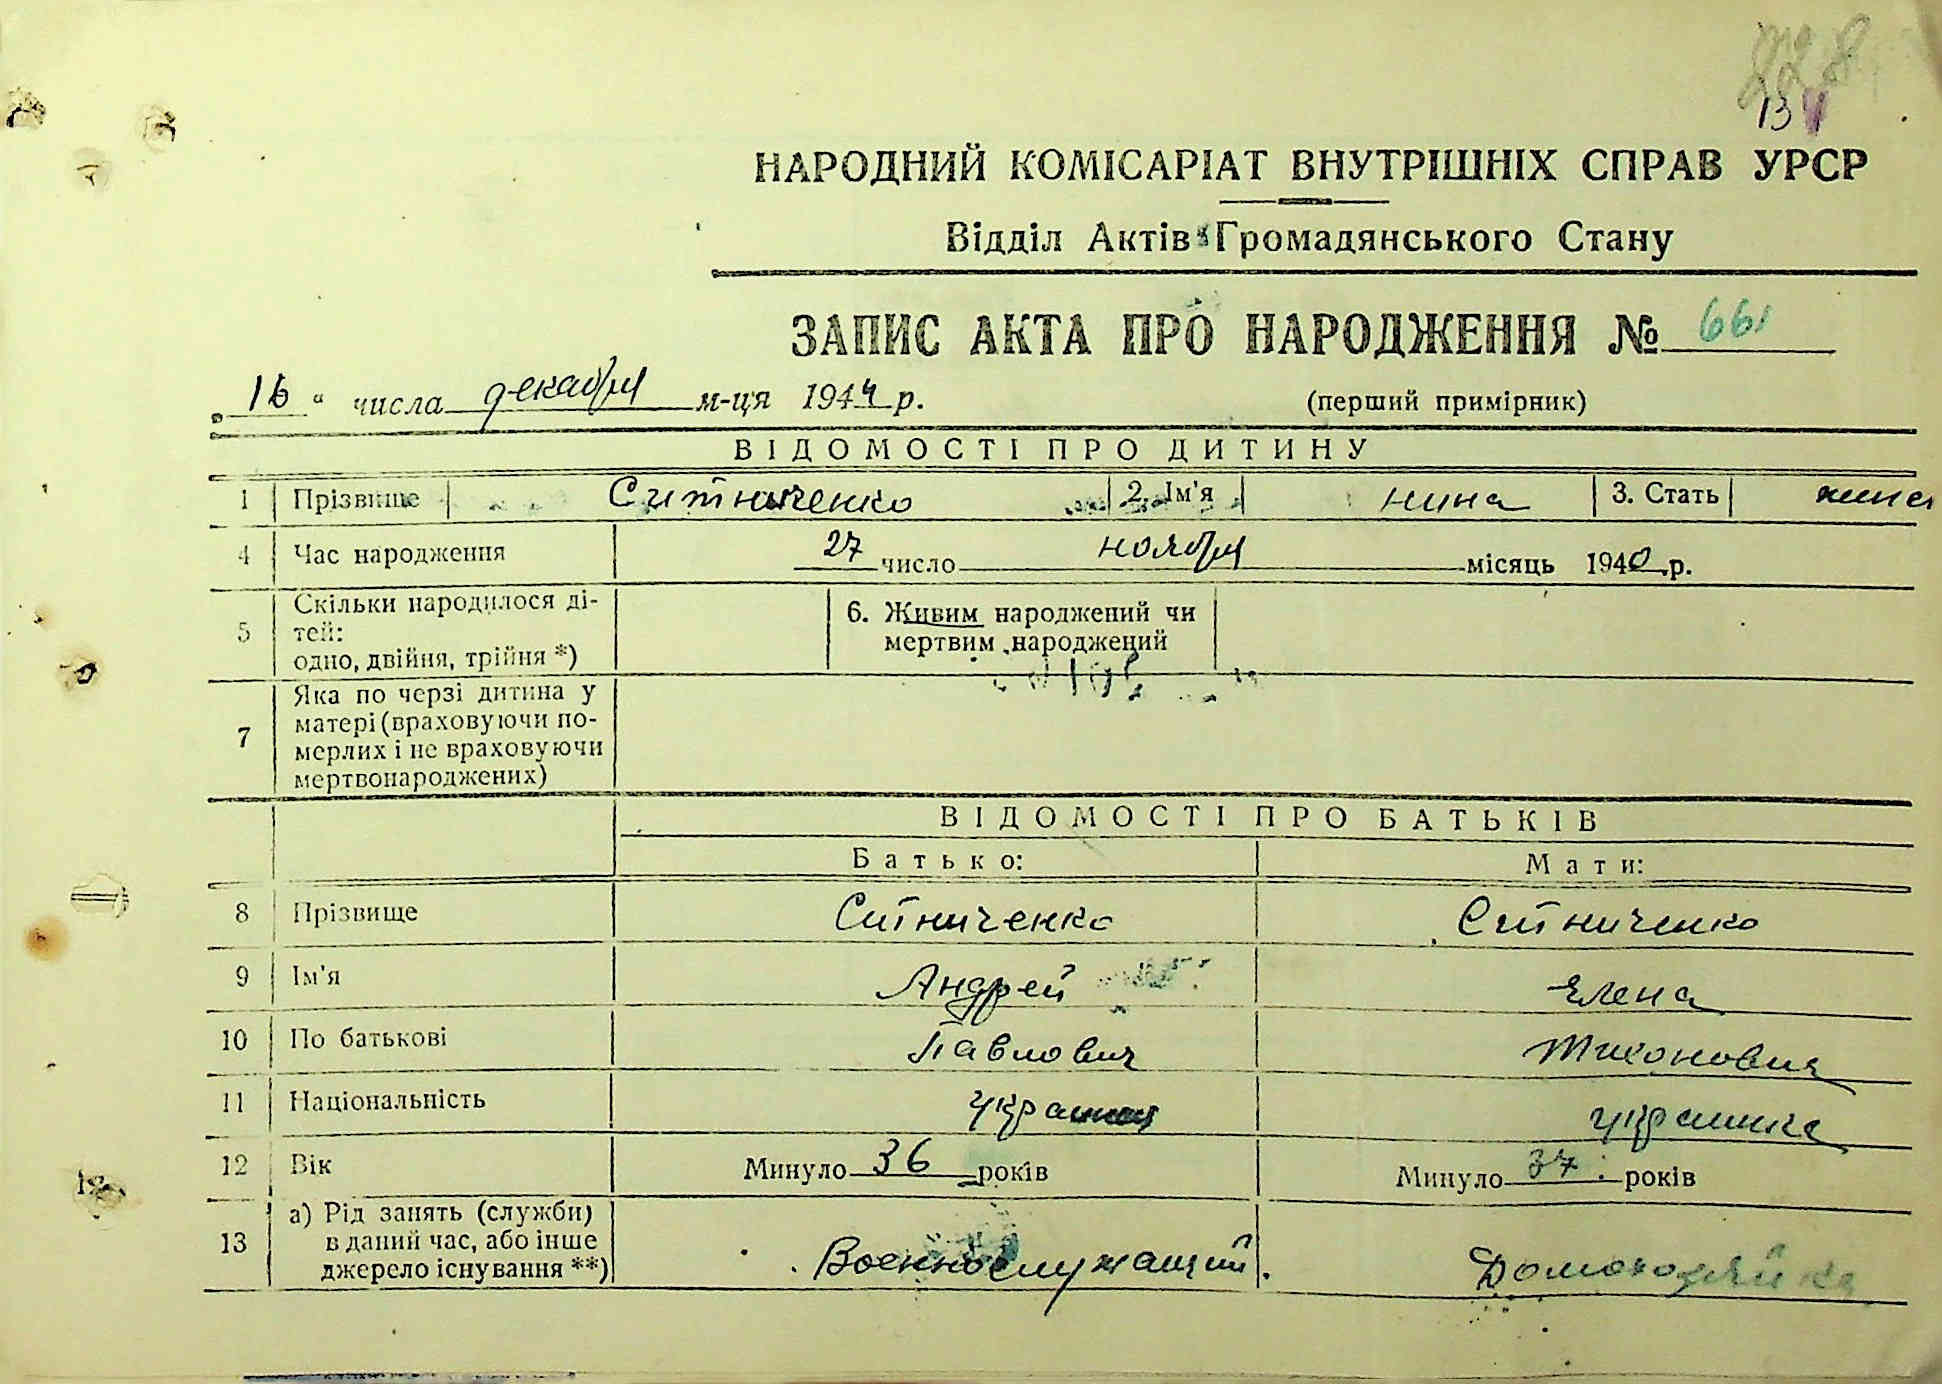 228
13
НАРОДНИЙ КОМІСАРІАТ ВНУТРІШНІХ СПРАВ УРСР
Відділ Актів Громадянського Стану
ЗАПИС АКТА ПРО НАРОДЖЕННЯ № 661
„16“ числа декабря м-ця 1944 р. (перший примірник)
ВІДОМОСТІ ПРО ДИТИНУ
1 Прізвище Ситниченко 2. Ім'я нина 3. Стать
4 Час народження 27 число ноября місяць 1940 р.
5 Скільки народилося ді-
тей:
одно, двійня, трійня *)
6. Живим народжений чи
мертвим народжений
7 Яка по черзі дитина у
матері (враховуючи по-
мерлих і не враховуючи
мертвонароджених)
ВІДОМОСТІ ПРО БАТЬКІВ
Батько: Мати:
8 Прізвище Ситниченко Ситниченко
9 Ім'я Андрей Елена
10 По батькові Павлович Тихоновна
11 Національність украинец украинка
12 Вік Минуло 36 років Минуло 37 років
13 а) Рід занять (служби)
в даний час, або інше
джерело існування **)
Военнослужащий. Домохозяйка